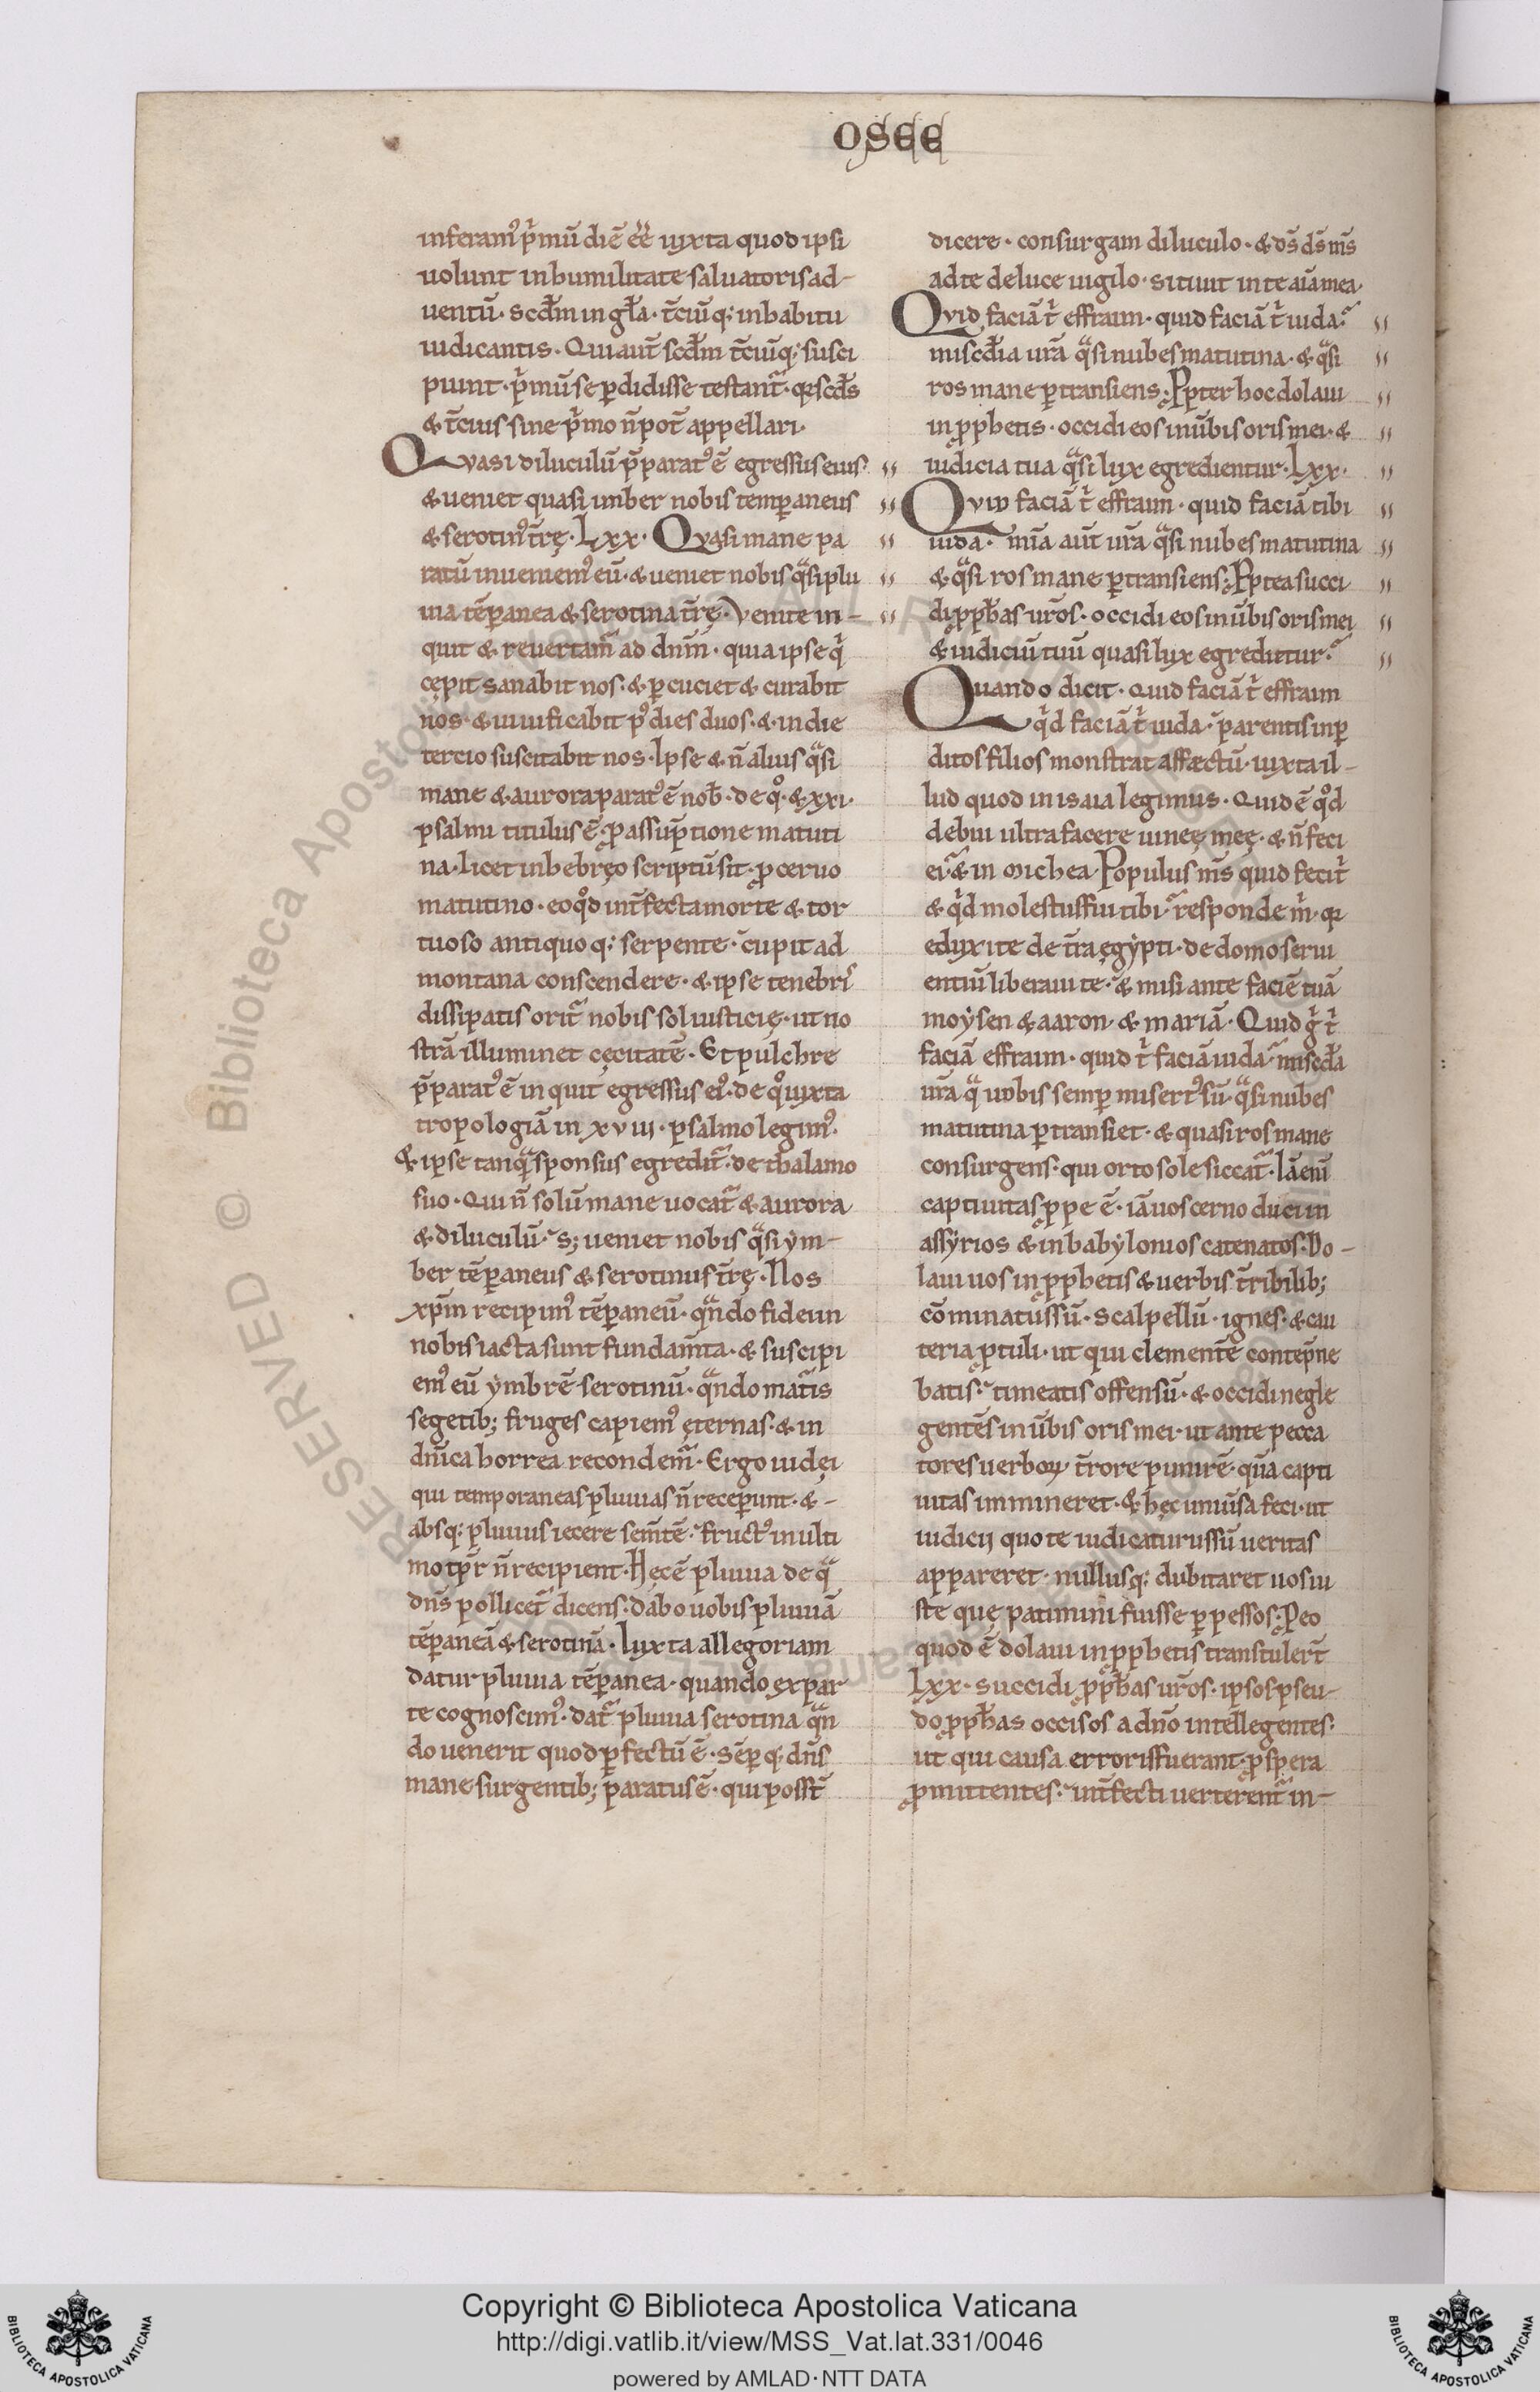 OSEE
inferam᷒ p̾mū diē eē̄ iuxta quod ipsi
uolunt in humilitate saluatoris ad-
uentū. scđm in gła. t̄ciūq; in habitu
iudicantis. Qui aut̄ scđm t̄ciūq; susci
piunt. p̾mū se ꝑdidisse testant᷑. q̄ scđs
& t̄cius sine p̾mo n̄ pot̄ appellari.
Qvasi diluculū p̄parat᷒ ē egressus eius.
& ueniet quasi imber nobis tempꝑaneus
& serotin᷒ t̄rę. Lxx. Qvasi mane pa
ratū inueniem᷒ eū. & ueniet nobis qͣsi plu
uia tēꝑanea & serotina t̄rę. Venite in-
quit & reuertam᷑ ad dnm̄. quia ipse q̾
cępit sanabit nos. & ꝑcuciet & curabit
nos. & uiuificabit p᷒ dies duos. & in die
tercio suscitabit nos. Ipse & n̄ alius qͣsi
mane & aurora parat᷒ ē nob̄. de qͦ. & xxi.
psalmi titulus ē. ꝓ assūptione matuti
na. licet in hebręo scriptū sit. ꝓ ceruo
matutino. eo qͦd int̄fecta morte & tor
tuoso antiquoq; serpente. cupit ad
montana conscendere. & ipse tenebrꝭ
dissipatis orit᷑ nobis sol iusticię. ut no
strā illuminet cęcitatē. Et pulchre
p̄parat᷒ ē inquit egressus ei᷒. de qͦ iuxta
tropologiā in xviii. psalmo legim᷒.
& ipse tanqͣ sponsus egredit᷑ de thalamo
suo. Qui n̄ solū mane uocat᷑ & aurora
& diluculū. s; ueniet nobis qͣsi ẏm-
ber tēꝑaneus & serotinus t̄rę. Nos
xp̄m recipim᷒ tēꝑaneū. qͣndo fidei in
nobis iacta sunt fundam̄ta. & suscipi
em᷒ eū ẏmbrē serotinū. qͣndo mat᷑is
segetib; fruges capiem᷒ ęternas. & in
dn̄ica horrea recondem᷑. Ergo iudęi
qui temporaneas pluuias n̄ receꝑunt. & -
absq; pluuiis iecere sem̄tē. fruct᷒ in ulti
mo tp̄r n̄ recipient. Hęc ē pluuia de qͣ
dn̄s pollicet᷑ dicens. dabo uobis pluuiā
tēꝑaneā & serotinā. Iuxta allegoriam
datur pluuia tēꝑanea. quando ex par
te cognoscim᷒. dat᷑ pluuia serotina qͣn
do uenerit quod ꝑfectū ē. Sēꝑq; dn̄s
mane surgentib; paratus ē. qui posst̄
dicere. consurgam diluculo. & ds̄ ds̄ ms̄
ad te de luce uigilo. sitiuit in te aīa mea.
Qvid faciā t̾ effraim. quid faciā t̾ iuda?
miscđia ur̄a qͣsi nubes matutina. & qͣsi
ros mane ꝑtransiens. Ꝓpter hoc dolaui
in ꝓphetis. occidi eos in ūbis oris mei. &
iudicia tua qͣsi lux egredientur. Lxx.
Qvid faciā t̾ effraim. quid faciā tibi
iuda. mīa aut̄ ur̄a qͣsi nubes matutina
& qͣsi ros mane ꝑtransiens. Ꝓptea succi
di ꝓpħas ur̄os. occidi eos in ūbis oris mei
& iudiciū tuū quasi lux egredietur.
Quando dicit. Quid faciā t̾ effraim
q̾d faciā t̾ iuda. parentis in ꝑ
ditos filios monstrat affæctū. iuxta il-
lud quod in isaia legimus. Quid ē qͦd
debui ultra facere uineę meę. & n̄ feci
ei? & in michea. Populus ms̄ quid feci t̾
& q̾d molestus fui tibi? responde m̾. q̄
eduxi te de t̄ra ęgẏpti. de domo serui
entiū liberaui te. & misi ante faciē tuā
moẏsen & aaron. & mariā. Quid g̾ t̾
faciā effraim. quid t̾ faciā iuda? miscđa
ur̄a qͣ uobis semꝑ misert᷒ sū. qͣsi nubes
matutina ꝑtransiet. & quasi ros mane
consurgens. qui orto sole siccat᷑. Iā eni᷑
captiuitas ꝓpe ē. iā uos cerno duci in
assẏrios & in babẏlonios catenatos. Do-
laui uos in ꝓphetis & uerbis t̄ribilib;
cōminatus sū. Scalpellū. ignes. & cau
teria ꝓtuli. ut qui clementē contēpne
batis. timeatis offensū. & occidi negle
gentes in ūbis oris mei. ut ante pecca
tores uerboꝝ t̄rore punirē. quā capti
uitas immineret. & hęc uniūsa feci. ut
iudicij quo te iudicaturus sū ueritas
appareret. nullusq; dubitaret uos iu
ste quę patimini fuisse ꝑpessos. Ꝓeo
quod ē dolaui in ꝓphetis transtulert̄
Lxx. succidi ꝓpħas ur̄os. ipsos pseu-
doꝓpħas occisos a dn̄o intellegentes.
ut qui causa erroris fuerant. ꝓspera
ꝓmittentes. int̄fecti uerterent᷑ in-
Copyright © Biblioteca Apostolica Vaticana
http://digi.vatlib.it/view/MSS_Vat.lat.331/0046
powered by AMLAD·NTT DATA
BIBLIOTECA APOSTOLICA VATICANA
BIBLIOTECA APOSTOLICA VATICANA